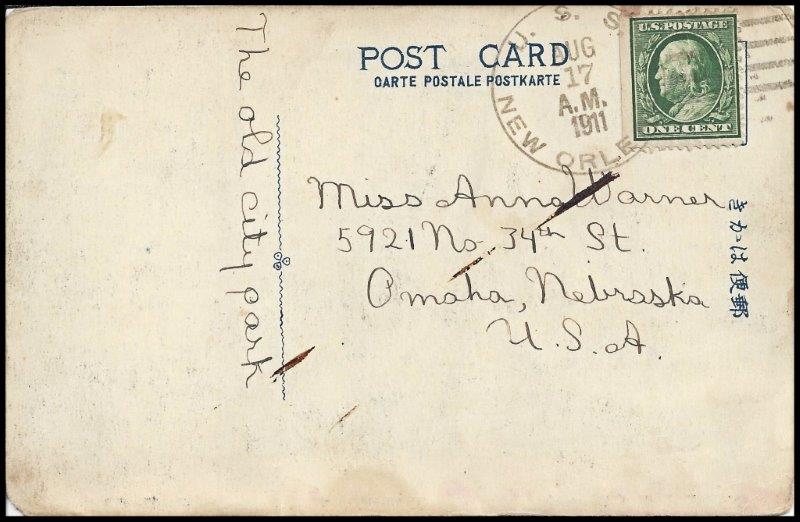 POST CARD
CARTE POSTALE POSTKARTE
U. S. S.
AUG
17
A.M.
1911
NEW ORLE
U.S. POSTAGE
ONE CENT
The old city park
Miss Anna Warner
5921 No. 34th St.
Omaha, Nebraska
U.S.A.
きかは便郵